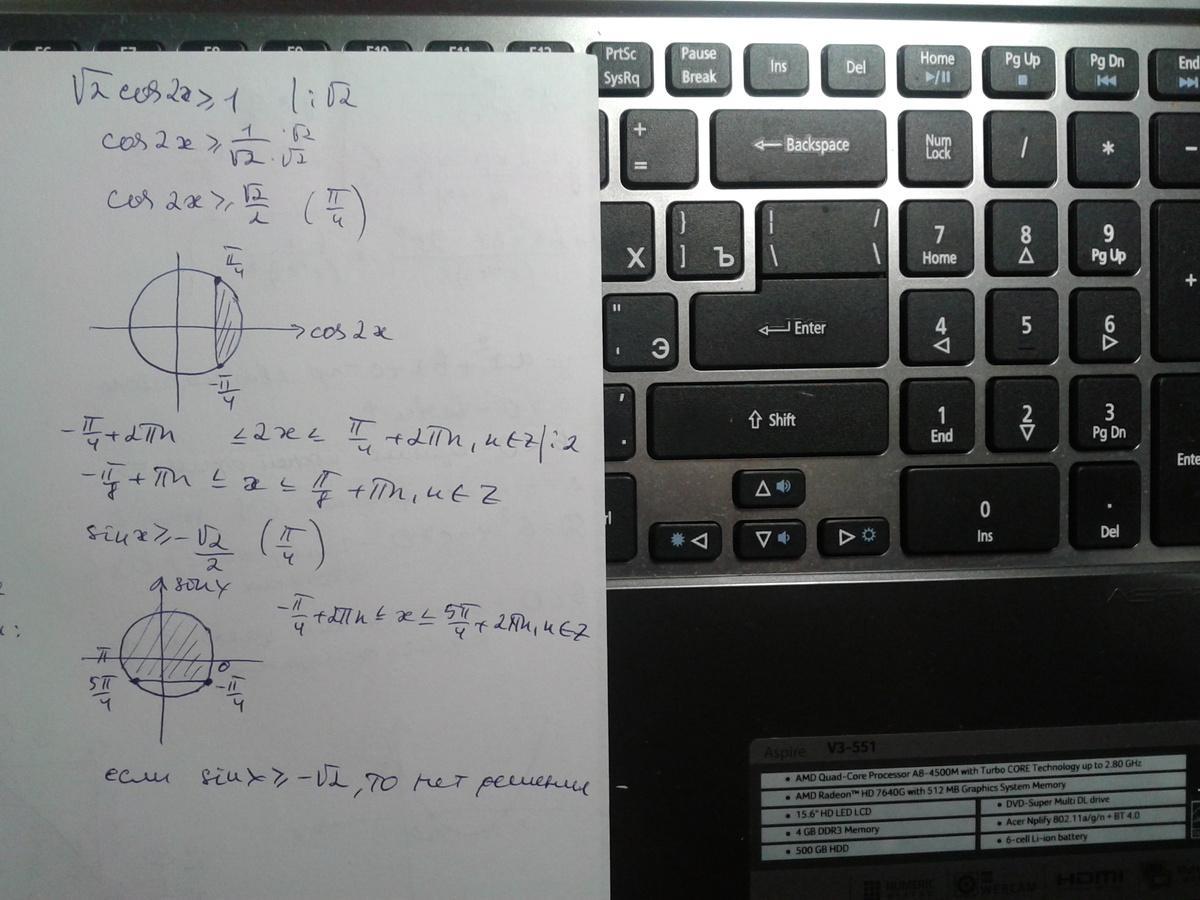 √2 cos2x ≥ 1 | : √2
cos 2x ≥ 1/√2 · √2/√2
cos 2x ≥ √2/2 (π/4)
π/4
cos2x
-π/4
-π/4 + 2πn ≤ 2x ≤ π/4 + 2πn, n ∈ Z | : 2
-π/8 + πn ≤ x ≤ π/8 + πn, n ∈ Z
sinx ≥ -√2/2 (π/4)
sinx
-π/4 + 2πn ≤ x ≤ 5π/4 + 2πn, n ∈ Z
π 0
5π/4 -π/4
если sinx ≥ -√2, то нет решения
PrtSc
SysRq
Pause
Break
Ins
Del
Home
Pg Up
Pg Dn
End
+
=
Backspace
Num
Lock
/
*
-
Х
}
]
Ъ
|
\
/
\
7
Home
8
9
Pg Up
+
"
'
Э
Enter
4
5
6
,
.
Shift
1
End
2
3
Pg Dn
Ente
0
Ins
.
Del
Aspire V3-551
AMD Quad-Core Processor A8-4500M with Turbo CORE Technology up to 2.80 GHz
AMD Radeon™ HD 7640G with 512 MB Graphics System Memory
15.6" HD LED LCD
DVD-Super Multi DL drive
4 GB DDR3 Memory
Acer Nplify 802.11a/g/n + BT 4.0
500 GB HDD
6-cell Li-ion battery
HDMI